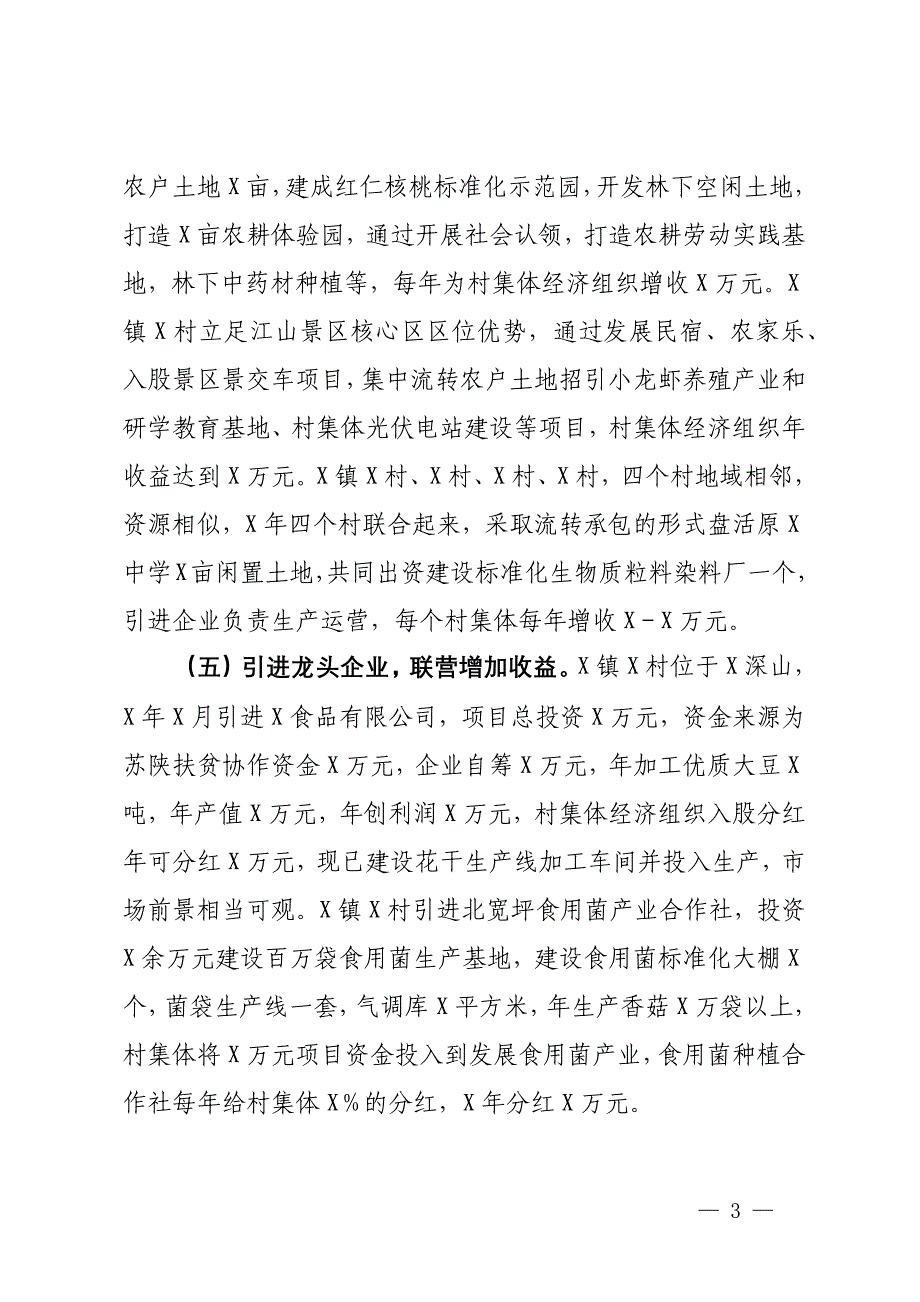 农户土地 X 亩，建成红仁核桃标准化示范园，开发林下空闲土地，
打造 X 亩农耕体验园，通过开展社会认领，打造农耕劳动实践基
地，林下中药材种植等，每年为村集体经济组织增收 X 万元。X
镇 X 村立足江山景区核心区区位优势，通过发展民宿、农家乐、
入股景区景交车项目，集中流转农户土地招引小龙虾养殖产业和
研学教育基地、村集体光伏电站建设等项目，村集体经济组织年
收益达到 X 万元。X 镇 X 村、X 村、X 村、X 村，四个村地域相邻，
资源相似，X 年四个村联合起来，采取流转承包的形式盘活原 X
中学 X 亩闲置土地，共同出资建设标准化生物质粒料染料厂一个，
引进企业负责生产运营，每个村集体每年增收 X-X 万元。
（五）引进龙头企业，联营增加收益。X 镇 X 村位于 X 深山，
X 年 X 月引进 X 食品有限公司，项目总投资 X 万元，资金来源为
苏陕扶贫协作资金 X 万元，企业自筹 X 万元，年加工优质大豆 X
吨，年产值 X 万元，年创利润 X 万元，村集体经济组织入股分红
年可分红 X 万元，现已建设花干生产线加工车间并投入生产，市
场前景相当可观。X 镇 X 村引进北宽坪食用菌产业合作社，投资
X 余万元建设百万袋食用菌生产基地，建设食用菌标准化大棚 X
个，菌袋生产线一套，气调库 X 平方米，年生产香菇 X 万袋以上，
村集体将 X 万元项目资金投入到发展食用菌产业，食用菌种植合
作社每年给村集体 X%的分红，X 年分红 X 万元。
— 3 —